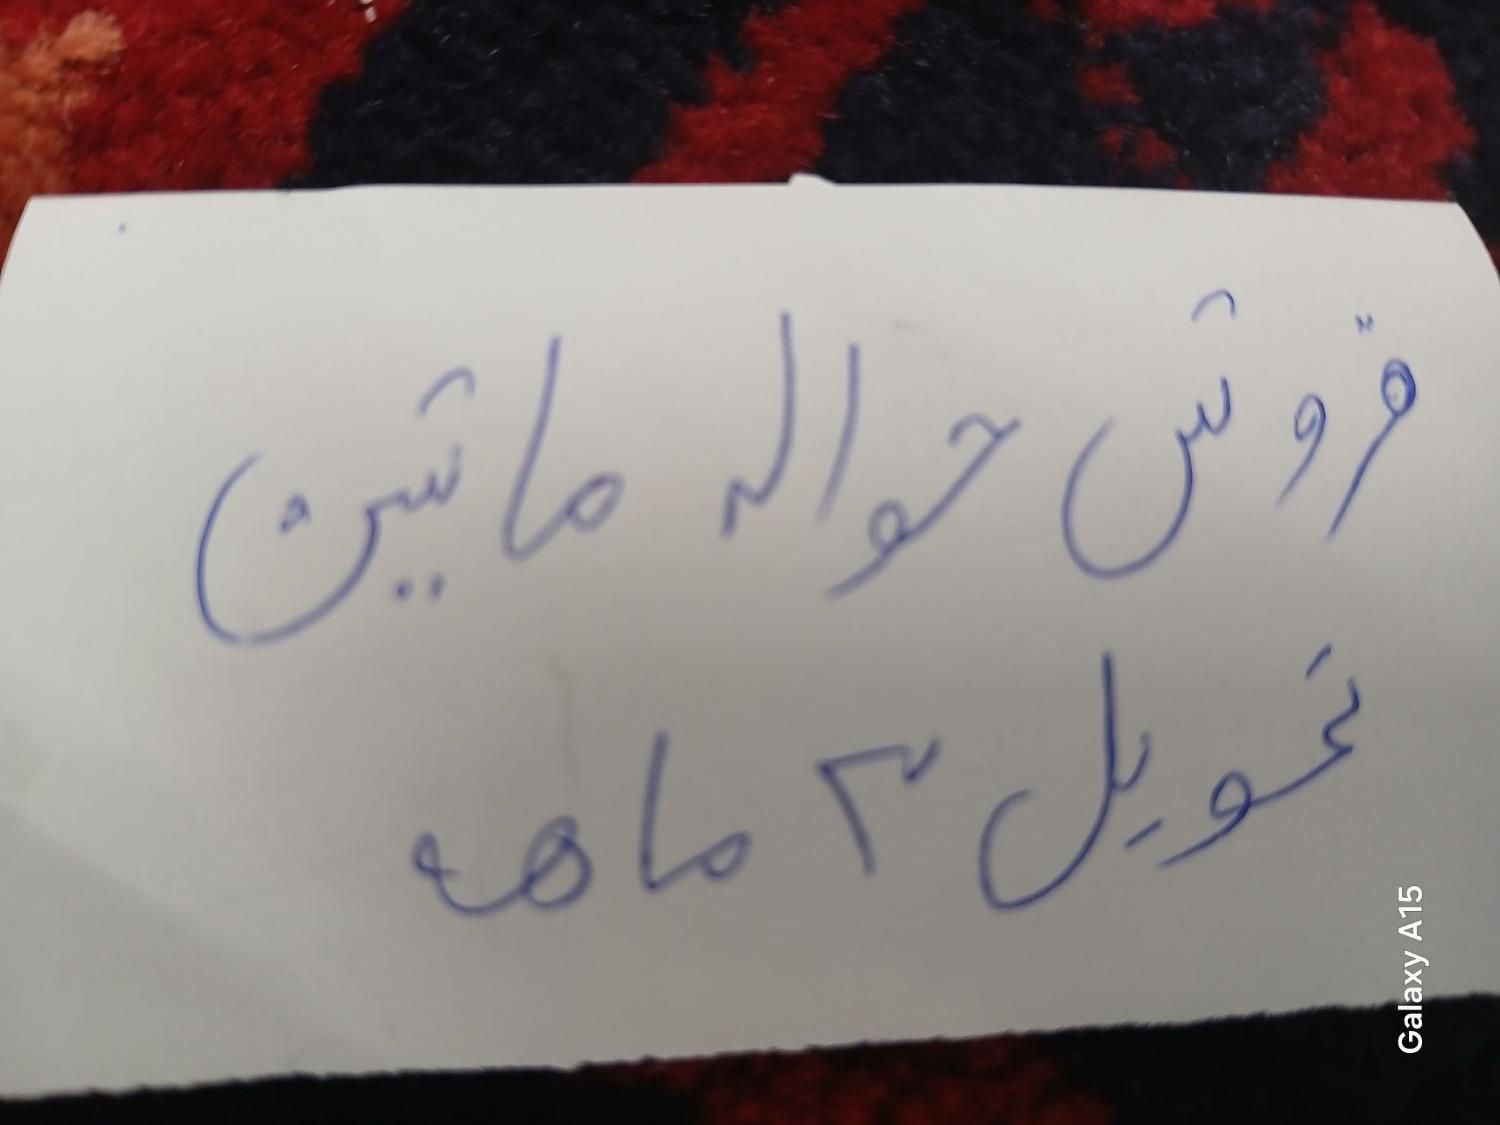 فروش حواله ماشین
تحویل ۳ ماهه
Galaxy A15